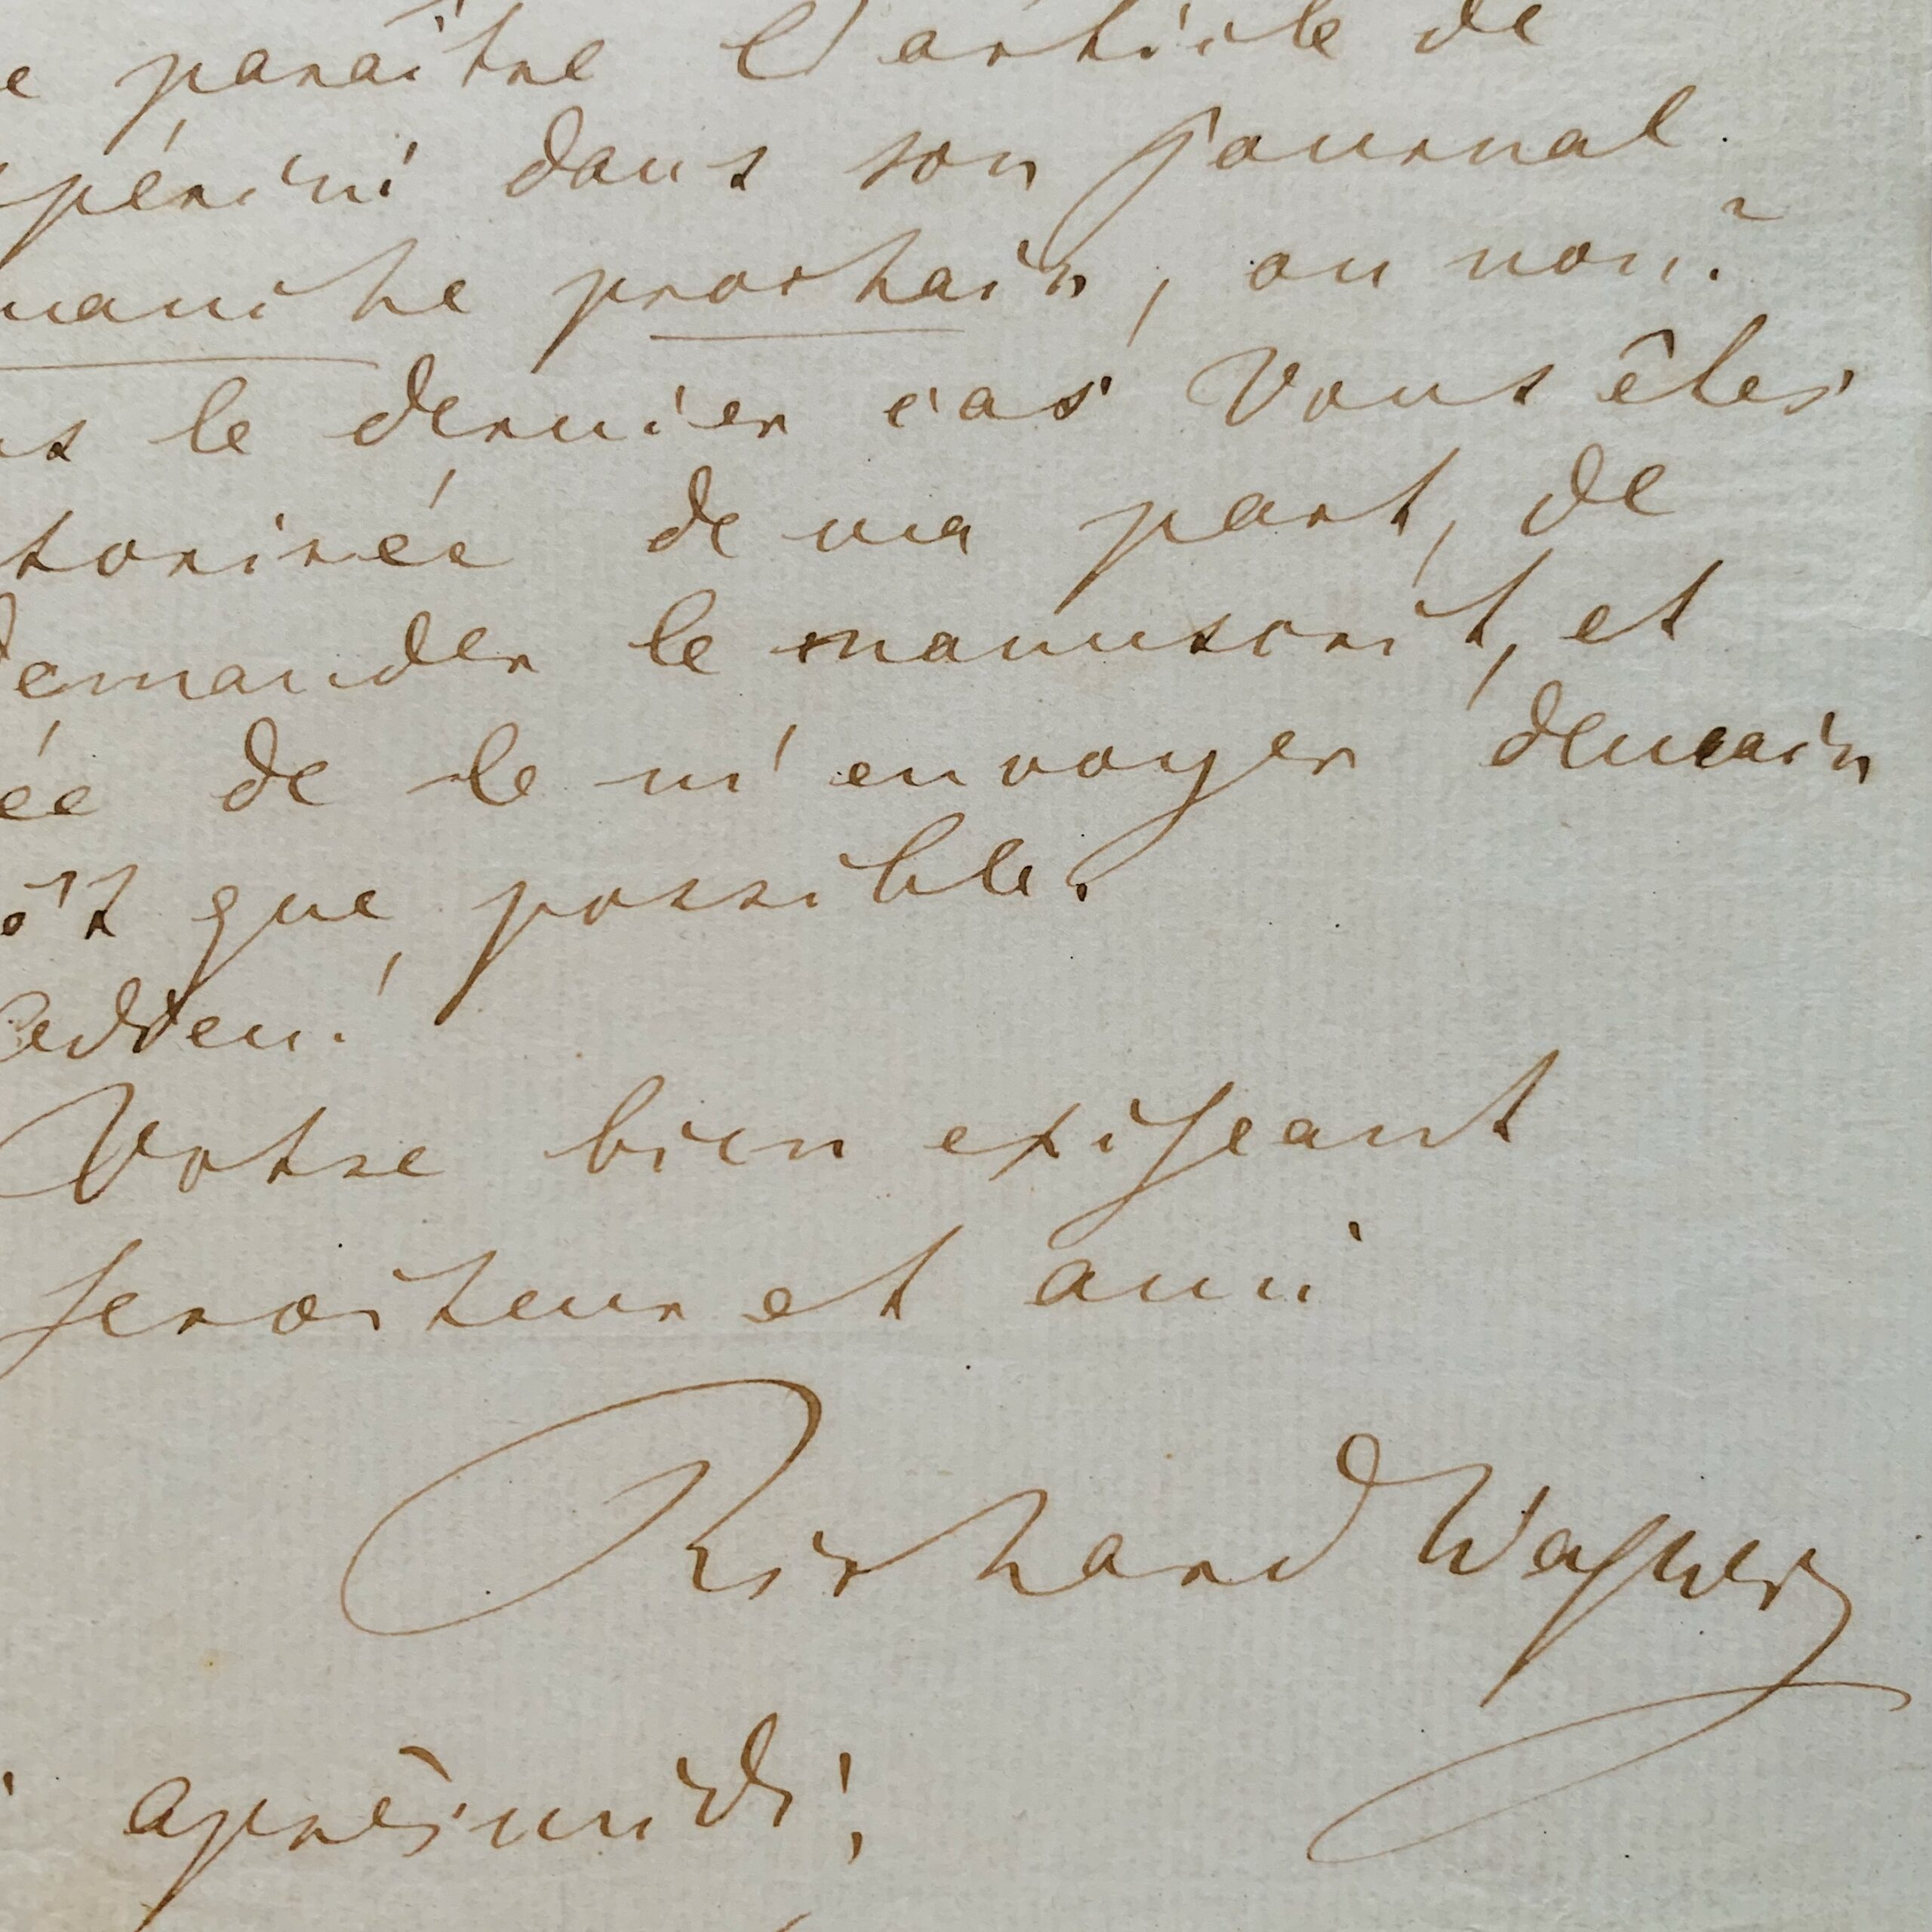 e paraître l'article de
péríni dans son journal
manche prochain, ou non?
s le dernier cas Vous êtes
torisée de ma part, de
demander le manuscrit, et
ée de le m'envoyer demain
ôt que possible.
Adieu!
Votre bien exigeant
serviteur et ami
Richard Wagner
aprèsmidi!